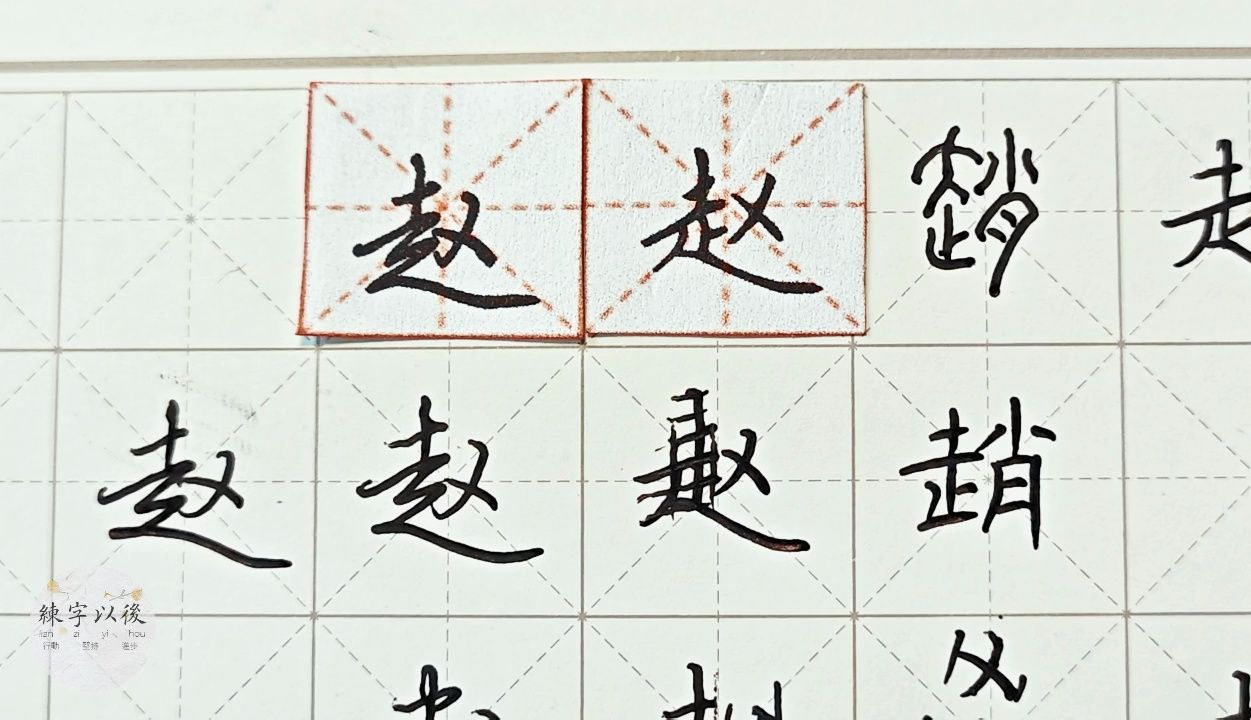 赵 赵 趙 走
赵 赵 赵 趙
練字以後
lian zi yi hou
行動 堅持 進步